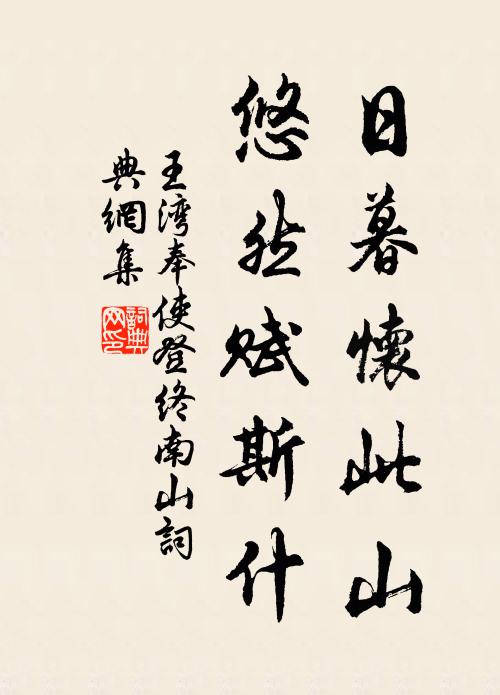 日暮懷此山
悠然赋斯什
王湾奉使登终南山詞
典網集
詞典
网印